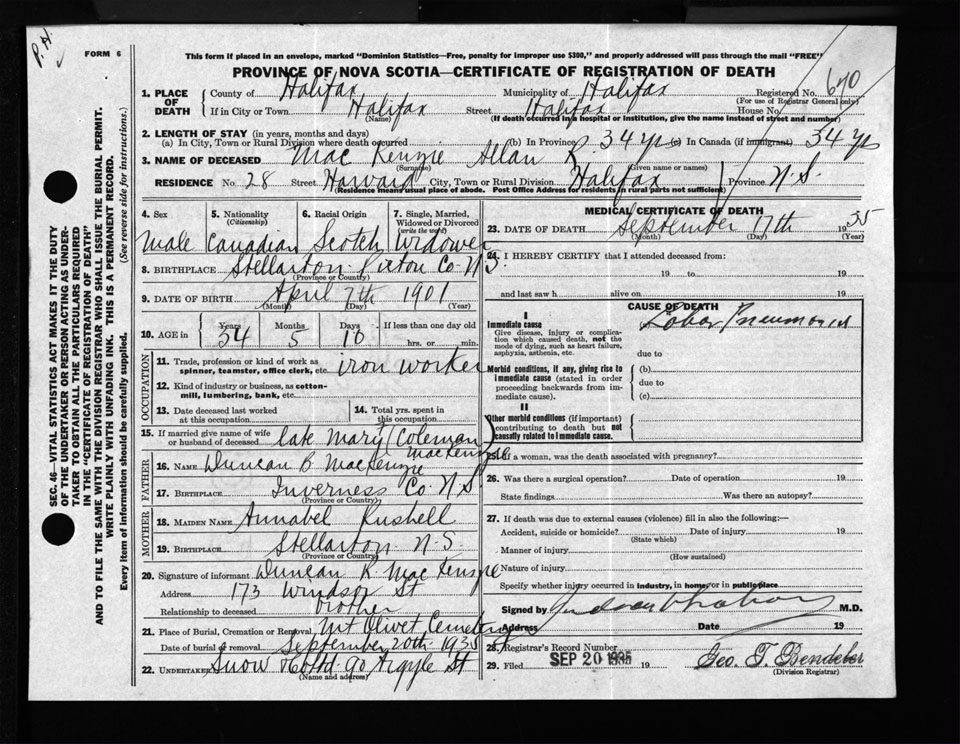 P. H.
FORM 6
This form if placed in an envelope, marked "Dominion Statistics—Free, penalty for improper use $300," and properly addressed will pass through the mail "FREE"
PROVINCE OF NOVA SCOTIA—CERTIFICATE OF REGISTRATION OF DEATH
670
1. PLACE OF DEATH
County of Halifax Municipality of Halifax Registered No.
(For use of Registrar General only)
If in City or Town Halifax Street Halifax House No.
(Name) (If death occurred in a hospital or institution, give the name instead of street and number)
2. LENGTH OF STAY (in years, months and days)
(a) In City, Town or Rural Division where death occurred (b) In Province 34 yrs (c) In Canada (if immigrant) 34 yrs
3. NAME OF DECEASED Mac Kenzie Allan R.
(Surname) (Given name or names)
RESIDENCE No. 28 Street Harvard City, Town or Rural Division Halifax Province N.S.
(Residence means usual place of abode. Post Office Address for residents in rural parts not sufficient)
SEC. 46—VITAL STATISTICS ACT MAKES IT THE DUTY
OF THE UNDERTAKER OR PERSON ACTING AS UNDER-
TAKER TO OBTAIN ALL THE PARTICULARS REQUIRED
IN THE "CERTIFICATE OF REGISTRATION OF DEATH"
AND TO FILE THE SAME WITH THE DIVISION REGISTRAR WHO SHALL ISSUE THE BURIAL PERMIT.
WRITE PLAINLY WITH UNFADING INK. THIS IS A PERMANENT RECORD.
Every item of information should be carefully supplied. (See reverse side for instructions.)
4. Sex 5. Nationality (Citizenship) 6. Racial Origin 7. Single, Married, Widowed or Divorced (write the word)
Male Canadian Scotch Widower
8. BIRTHPLACE Stellarton Pictou Co. N.S.
(Province or Country)
9. DATE OF BIRTH April 7th 1901
(Month) (Day) (Year)
10. AGE in Years Months Days If less than one day old
34 5 10 hrs. or min.
OCCUPATION
11. Trade, profession or kind of work as
spinner, teamster, office clerk, etc. iron worker
12. Kind of industry or business, as cotton-
mill, lumbering, bank, etc.
13. Date deceased last worked
at this occupation
14. Total yrs. spent in
this occupation
15. If married give name of wife
or husband of deceased late Mary (Coleman) MacKenzie
FATHER
16. NAME Duncan B MacKenzie
17. Birthplace Inverness Co. N.S
(Province or Country)
MOTHER
18. MAIDEN NAME Annabel Rushell
19. Birthplace Stellarton N.S
(Province or Country)
20. Signature of informant Duncan R. MacKenzie
Address 173 Windsor St
Relationship to deceased brother
21. Place of Burial, Cremation or Removal Mt Olivet Cemetery
Date of burial or removal September 20th 1935
22. UNDERTAKER Snow & Co Ltd. 90 Argyle St
(Name and address)
MEDICAL CERTIFICATE OF DEATH
23. DATE OF DEATH September 17th 1935
(Month) (Day) (Year)
24. I HEREBY CERTIFY that I attended deceased from:
19 to 19
and last saw h alive on 19
CAUSE OF DEATH
I
Immediate cause
Give disease, injury or complica-
tion which caused death, not the
mode of dying, such as heart failure,
asphyxia, asthenia, etc.
(a) Lobar Pneumonia
due to
Morbid conditions, if any, giving rise to
immediate cause (stated in order
proceeding backwards from im-
mediate cause).
(b)
due to
(c)
II
Other morbid conditions (if important)
contributing to death but not
causally related to immediate cause.
25. If a woman, was the death associated with pregnancy?
26. Was there a surgical operation? Date of operation 19
State findings Was there an autopsy?
27. If death was due to external causes (violence) fill in also the following:—
Accident, suicide or homicide? Date of injury 19
(State which)
Manner of injury
(How sustained)
Nature of injury
Specify whether injury occurred in industry, in home, or in public place
Signed by M.D.
Address Date 19
28. Registrar's Record Number
29. Filed SEP 20 1935 19 Geo. T. Bendeler
(Division Registrar)